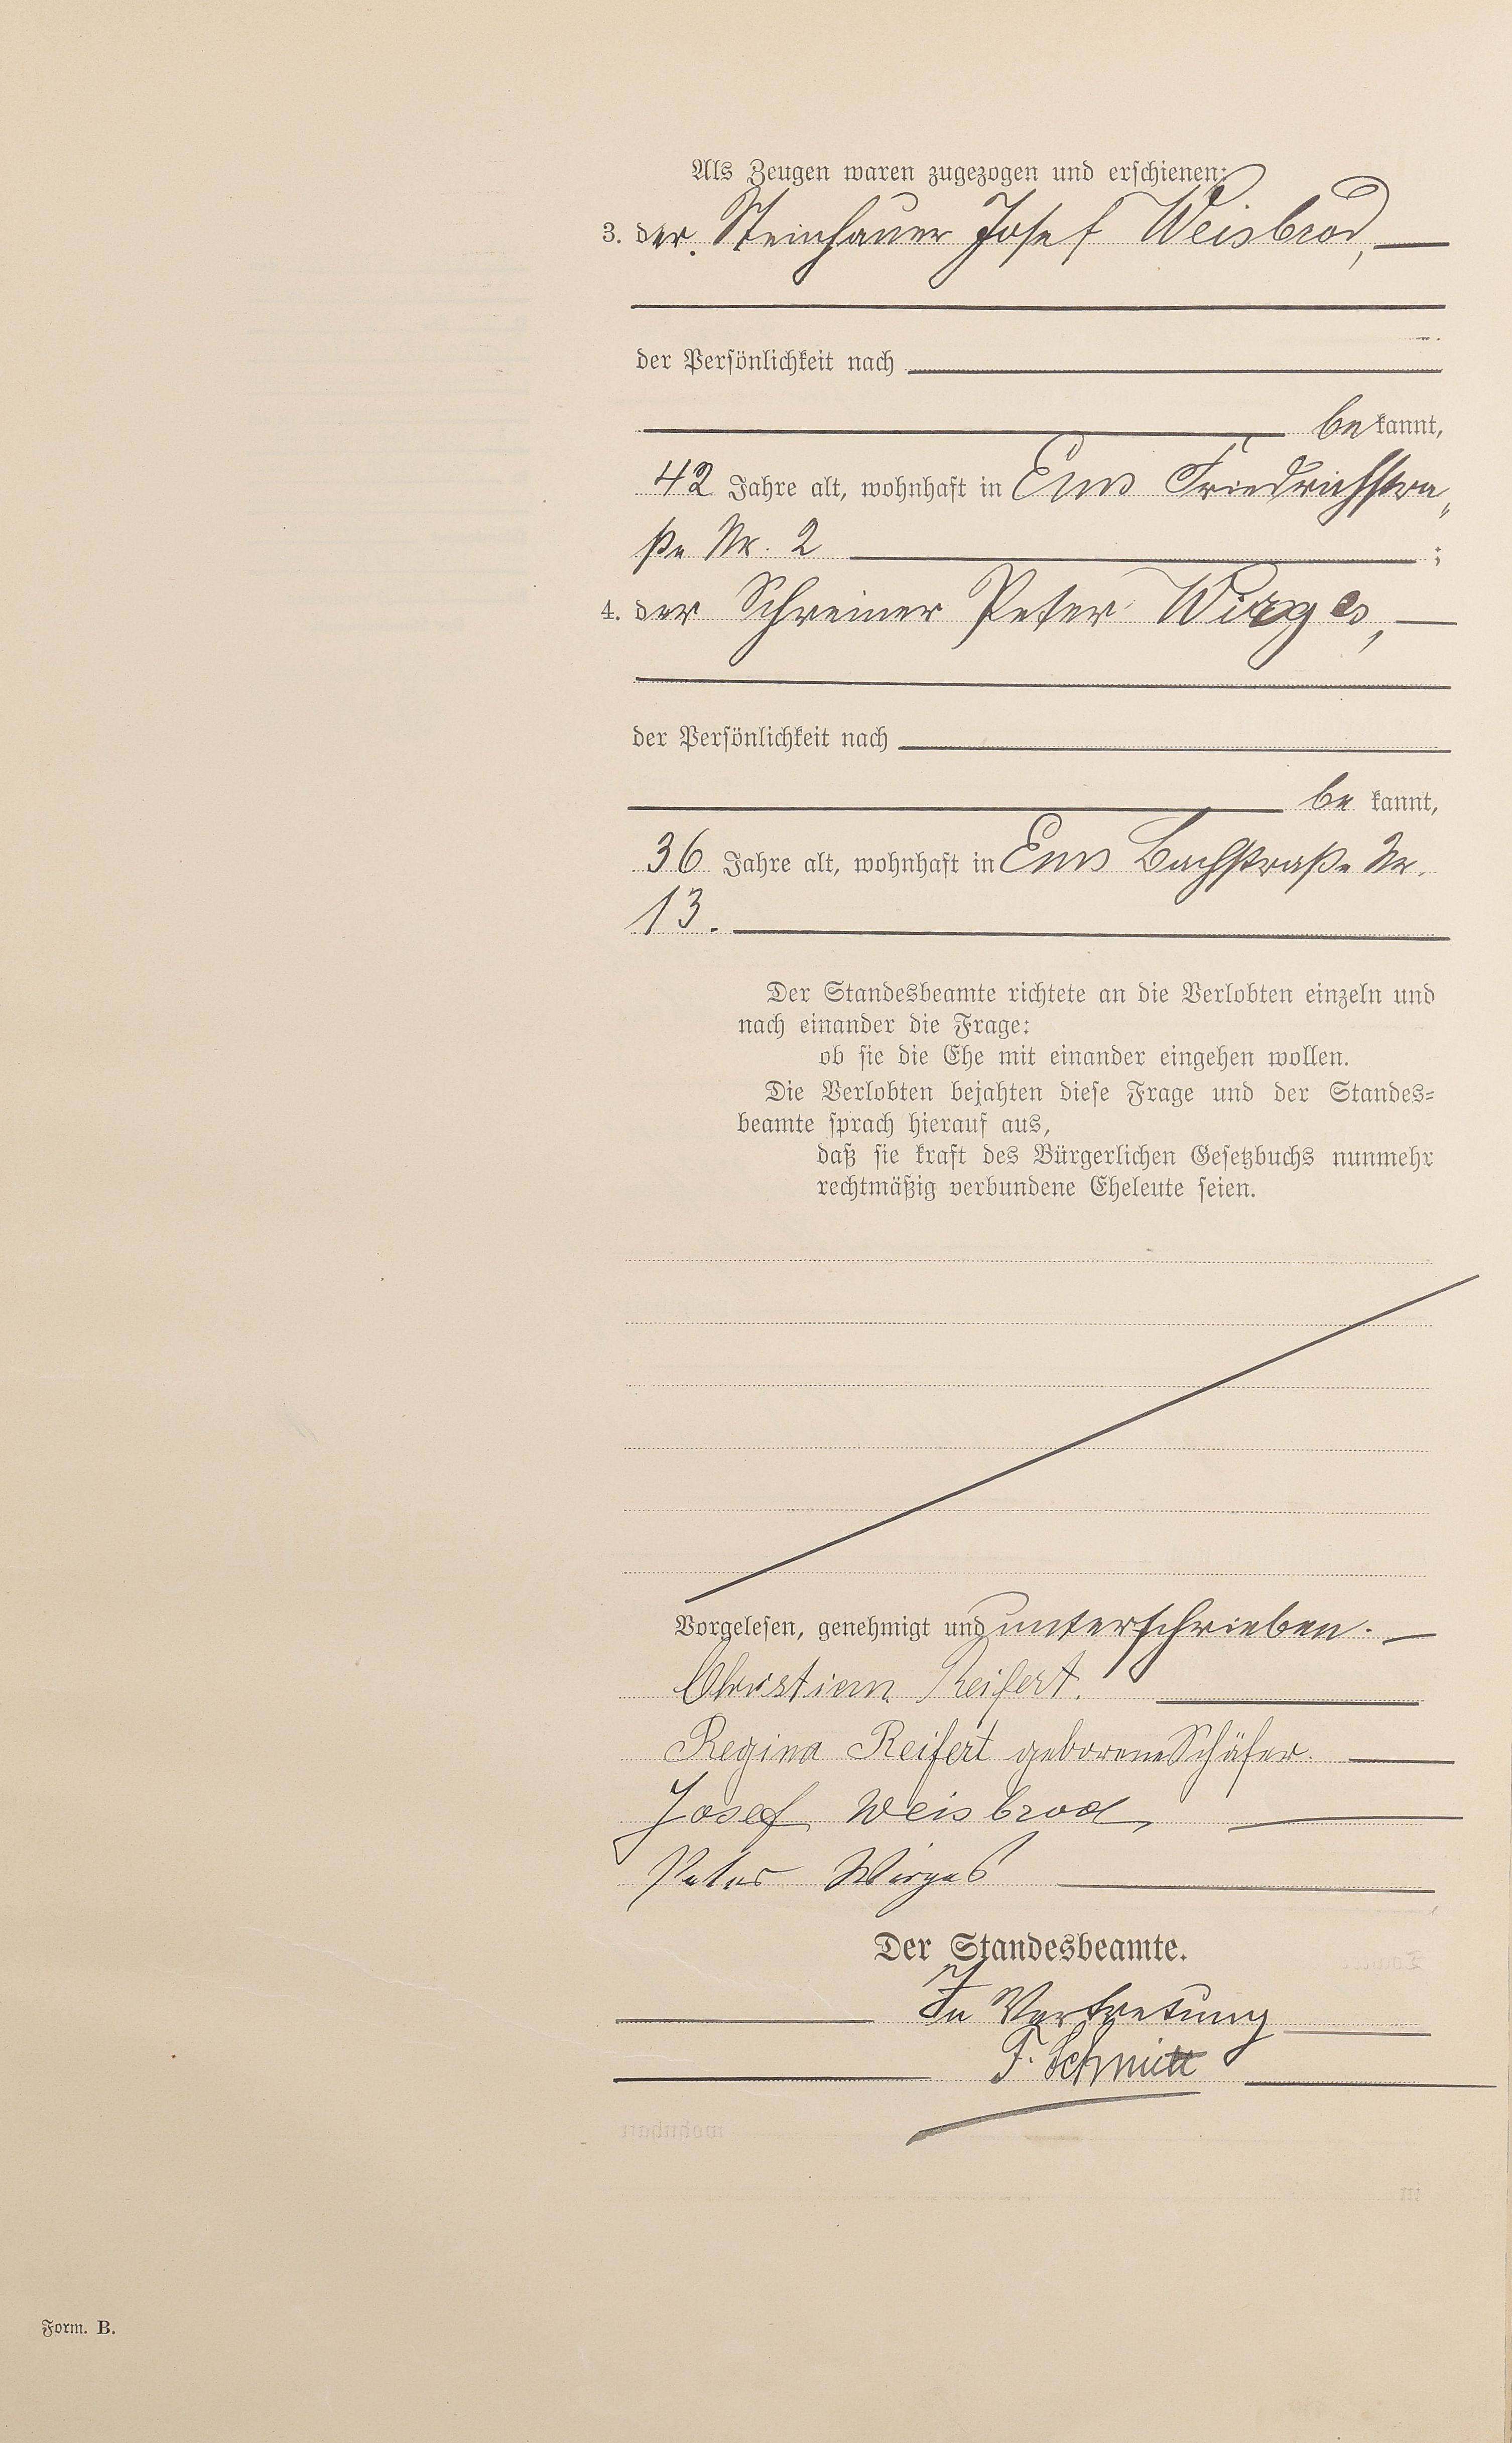 Als Zeugen waren zugezogen und erschienen:
3. der Steinhauer Josef Weisbrod,
der Persönlichkeit nach
be kannt,
42 Jahre alt, wohnhaft in Ems Friedrichstra„
ße Nr. 2 ;
4. der Schreiner Peter Wirges,
der Persönlichkeit nach
be kannt,
36 Jahre alt, wohnhaft in Ems Bachstraße Nr.
13.
Der Standesbeamte richtete an die Verlobten einzeln und
nach einander die Frage:
ob sie die Ehe mit einander eingehen wollen.
Die Verlobten bejahten diese Frage und der Standes-
beamte sprach hierauf aus,
daß sie kraft des Bürgerlichen Gesetzbuchs nunmehr
rechtmäßig verbundene Eheleute seien.
Vorgelesen, genehmigt und unterschrieben.
Christian Reifert.
Regina Reifert geborene Schäfer.
Josef Weisbrod
Peter Wirges
Der Standesbeamte.
In Vertretung
F. Schmitt
Form. B.